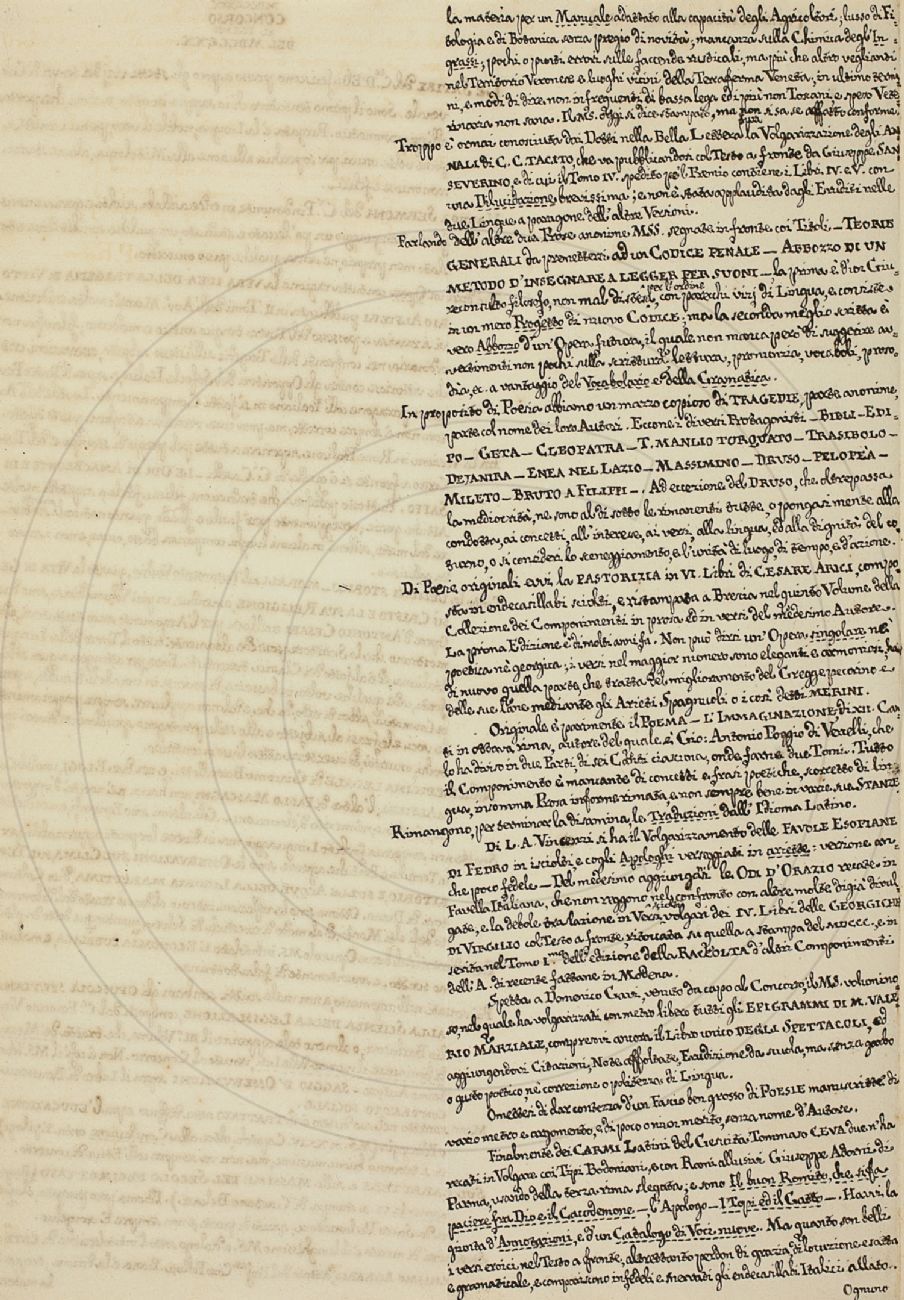 la materia per un Manuale adattato alla capacità degli Agricoltori; lusso di Fi-
tologia e di Botanica senza pregio di novità; mancanza sulla Chimica degl'In-
grassi; pochi o punti errori sulle faccende rusticali, ma più che altro veglianti
nel Territorio Veronese e luoghi vicini della Terraferma Veneta; in ultimo termi-
ni, e modi di dire non infrequenti di bassa lega ed i più non Toscani, e spero Vete-
rinaria non sana. Il MS. oggi si dice stampato, ma non si sa se affatto conforme.
Troppo è ormai conosciuta dai Dotti nella Bella Lettera la Volgarizzazione degli AN-
NALI di C. C. TACITO, che va pubblicandosi col Testo a fronte da Giuseppe SAN
SEVERINO, e di cui il Tomo IV. spedito pe'l Premio contiene i Libri IV. e V. con
una Dilucidazione brevissima; e non è stata applaudita dagli Eruditi nelle
due Lingue a paragone dell'altre Versioni.
Parlando dell'altre due Prose anonime MSS. segnate in fronte coi Titoli – TEORIE
GENERALI da premettersi ad un CODICE PENALE – ABBOZZO DI UN
METODO D'INSEGNARE A LEGGER PER SUONI – la prima è d'un Giu-
reconsulto filosofo, non mal distesa per l'ordine, con parecchi vizj di Lingua, e consiste
in un mero Progetto di nuovo CODICE; ma la seconda meglio scritta è
vero Abbozzo d'un'Opera futura, il quale non manca però di suggerire av-
vertimenti non pochi sulla scrittura, lettura, pronunzia, vocaboli, proso-
dìa, ec. a vantaggio del Vocabolario e della Gramatica.
In proposito di Poesia abbiamo un mazzo copioso di TRAGEDIE, parte anonime,
parte col nome dei loro Autori. Eccone i diversi Protagonisti – BIBLI – EDI-
PO – GETA – CLEOPATRA – T. MANLIO TORQUATO – TRASIBOLO –
DEJANIRA – ENEA NEL LAZIO – MASSIMINO – DRUSO – PELOPEA –
MILETO – BRUTO A FILIPPI –. Ad eccezione del DRUSO, che oltrepassa
la mediocrità, ne sono al di sotto le rimanenti tutte, o pongasi mente alla
condotta, ai concetti, all'interesse, ai versi, alla lingua, ed alla dignità del co-
turno, o si consideri lo sceneggiamento, e l'unità di luogo di tempo, e d'azione.
Di Poesie originali evvi, la PASTORIZIA in VI. Libri di CESARE ARICI, compo-
sta in endecasillabi sciolti, e ristampata a Brescia nel quinto Volume della
Collezione dei Componimenti in prosa ed in versi del medesimo Autore.
La prima Edizione è di molti anni fa. Non può dirsi un'Opera singolare nè
poetica nè georgica; i versi nel maggior numero sono eleganti e armoniosi; ha
di nuovo quella parte, che tratta del miglioramento del Gregge pecorino e
delle sue lane mediante gli Arieti Spagnuoli o i così detti MERINI.
Originale è parimente il POEMA – L'IMMAGINAZIONE, di XII. Can-
ti in ottava rima, autore del quale è Crio: Antonio Poggio di Vercelli, che
lo ha diviso in due Parti, di sei Canti ciascuna, onde farne due Tomi. Tutto
il Componimento è mancante di concetti e frasi poetiche, scorretto di lin-
gua, insomma Prosa informe rimata, e non sempre bene in varie sue STANZE.
Rimangono, per terminar la disamina, le Traduzioni dall'Idioma Latino.
Di L. A. Vincenzi si ha il Volgarizzamento delle FAVOLE ESOPIANE
DI FEDRO in isciolti, e cogli Apologhi verseggiati in ariette: versione an-
che poco fedele – Del medesimo aggiungansi le ODI D'ORAZIO recate in
Favella Italiana, che non reggono nel confronto con altre molte di già divul-
gate, e la debole traslazione in Versi sciolti volgari dei IV. Libri delle GEORGICHE
DI VIRGILIO col Testo a fronte, ritoccata su quella a stampa del MDCCC., e in-
serita nel Tomo I.mo dell'edizione della RACCOLTA d'altri Componimenti
dell'A. di recente fattane in Modena.
Spetta a Domenico Gazzi, venuto da capo al Concorso, il MS. volumino-
so, nel quale ha volgarizzati con metro libero tutti gli EPIGRAMMI DI M. VALE-
RIO MARZIALE, compresivi ancora il Libro unico DEGLI SPETTACOLI, ed
aggiungendovi Citazioni, Note affoltate, Erudizione da scuola, ma senza garbo
o gusto poetico, nè correzione o pulitezza di Lingua.
Omettesi di dar contezza d'un Fascio ben grosso di POESIE manuscritte di
vario metro e argomento, e di poco o niun merito, senza nome d'Autore.
Finalmente dei CARMI Latini del Gesuita Tommaso CEVA due n'ha
recati in Volgare coi Tipi Bodoniani, e con Rami allusivi Giuseppe Adorni di
Parma, usando della terza rima slegata; e sono Il buon Romito, che si fa
paciere fra Dio e il Cacodemone – l'Apologo – I Topi ed il Gatto –. Havvi la
giunta d'Annotazioni, e d'un Catalogo di Voci nuove. Ma quanto son belli
i versi eroici nel Testo a fronte, altrettanto perdon di grazia, di locuzione esatta
e gramaticale, e compariscono infedeli e snervati gli endecasillabi Italici allato.
Ognuno